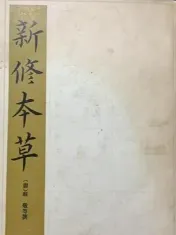 新修本草